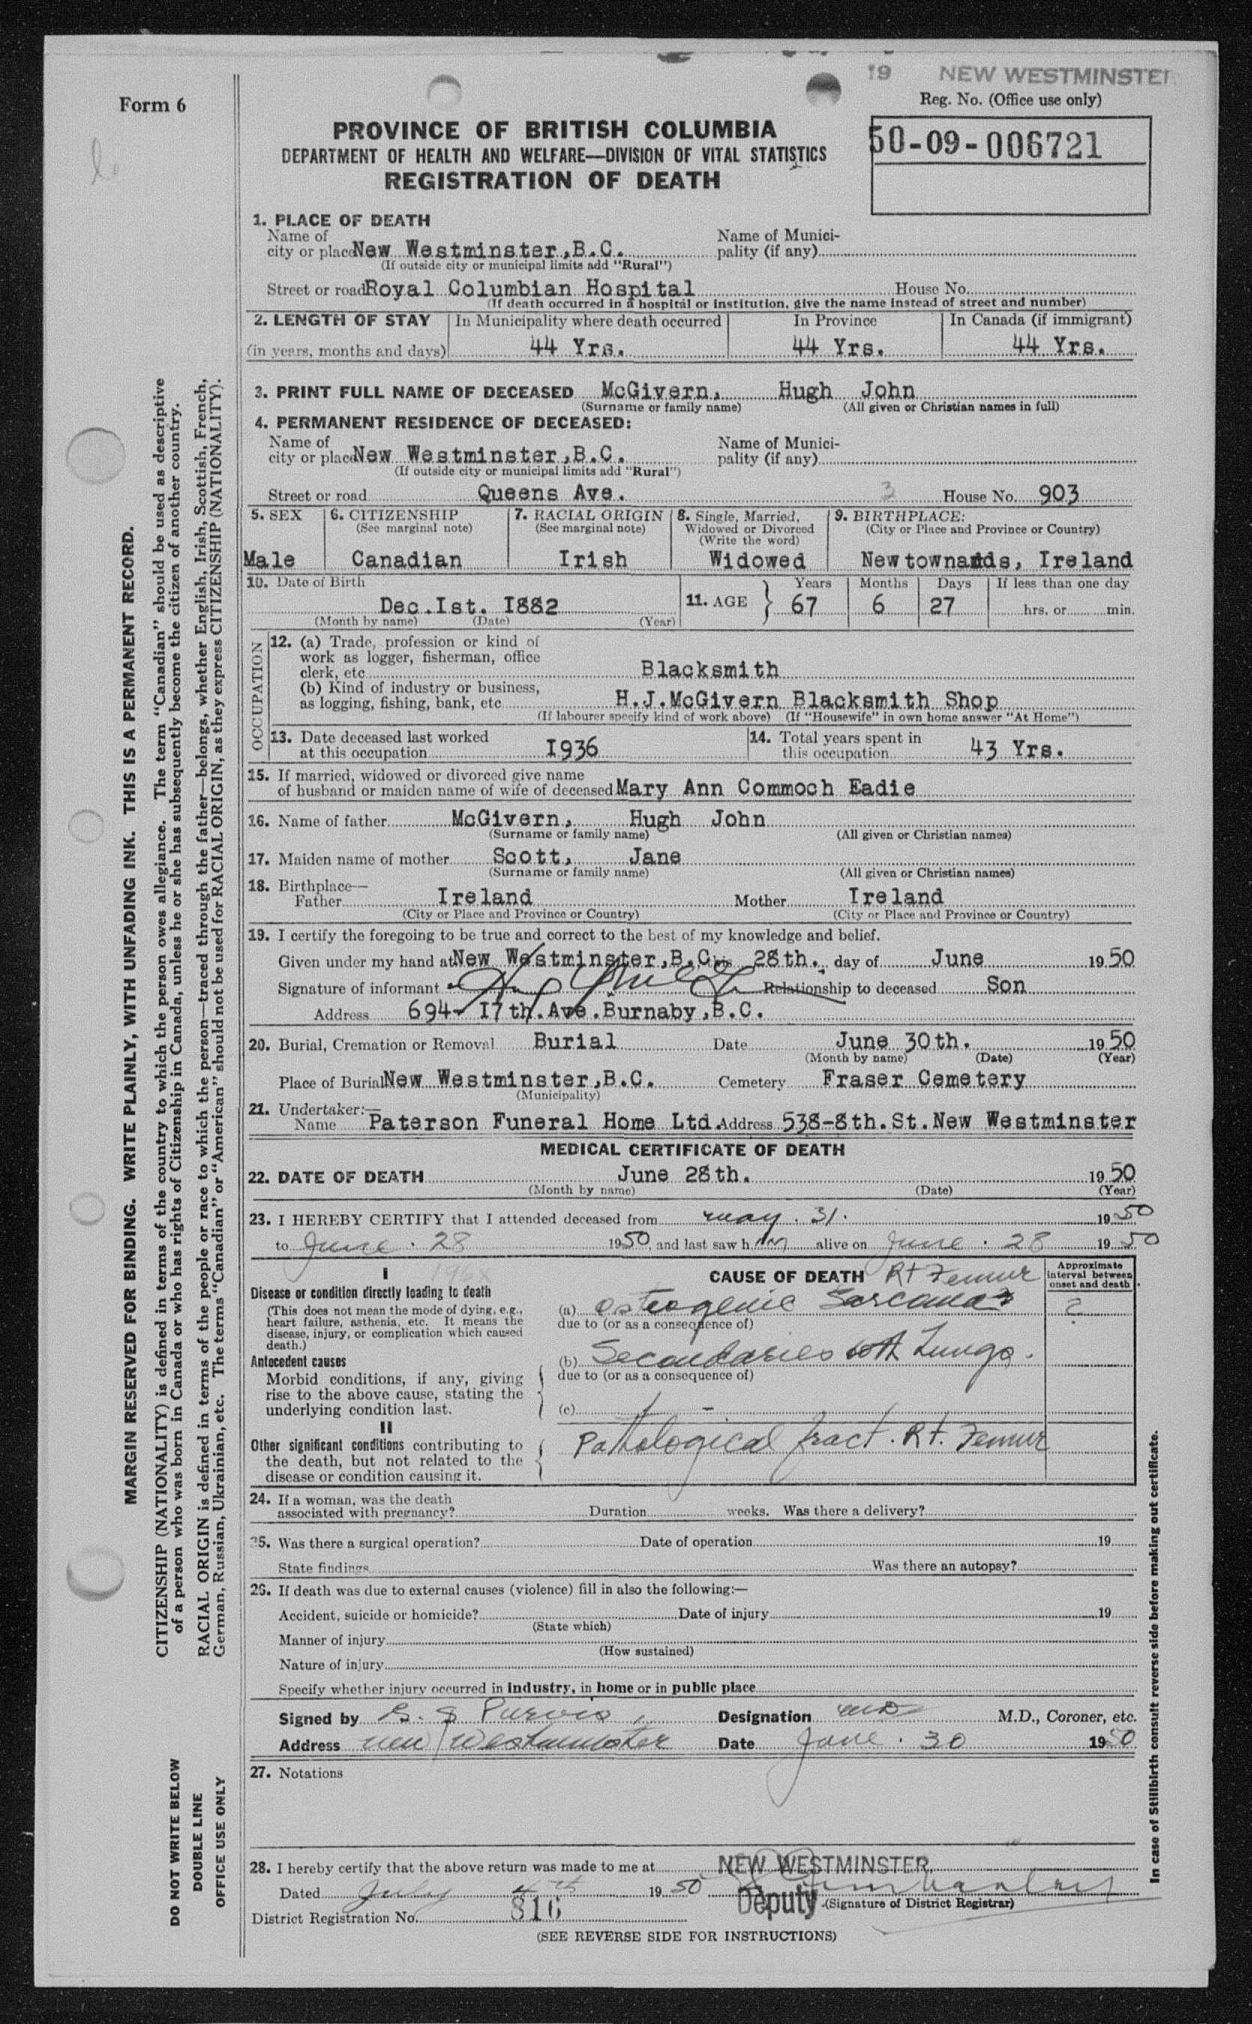 19 NEW WESTMINSTER
Form 6
Reg. No. (Office use only)
PROVINCE OF BRITISH COLUMBIA
50-09-006721
DEPARTMENT OF HEALTH AND WELFARE—DIVISION OF VITAL STATISTICS
REGISTRATION OF DEATH
1. PLACE OF DEATH
Name of city or place New Westminster,B.C. Name of Municipality (if any)
(If outside city or municipal limits add "Rural")
Street or road Royal Columbian Hospital House No.
(If death occurred in a hospital or institution, give the name instead of street and number)
2. LENGTH OF STAY In Municipality where death occurred In Province In Canada (if immigrant)
(in years, months and days) 44 Yrs. 44 Yrs. 44 Yrs.
3. PRINT FULL NAME OF DECEASED McGivern, Hugh John
(Surname or family name) (All given or Christian names in full)
4. PERMANENT RESIDENCE OF DECEASED:
Name of city or place New Westminster,B.C. Name of Municipality (if any)
(If outside city or municipal limits add "Rural")
Street or road Queens Ave. 3 House No. 903
5. SEX 6. CITIZENSHIP 7. RACIAL ORIGIN 8. Single, Married, 9. BIRTHPLACE:
(See marginal note) (See marginal note) Widowed or Divorced (City or Place and Province or Country)
(Write the word)
Male Canadian Irish Widowed Newtownards, Ireland
10. Date of Birth 11. AGE Years Months Days If less than one day
Dec.Ist. I882 67 6 27 hrs. or min.
(Month by name) (Date) (Year)
OCCUPATION
12. (a) Trade, profession or kind of
work as logger, fisherman, office
clerk, etc. Blacksmith
(b) Kind of industry or business,
as logging, fishing, bank, etc. H.J.McGivern Blacksmith Shop
(If labourer specify kind of work above) (If "Housewife" in own home answer "At Home")
13. Date deceased last worked 14. Total years spent in
at this occupation I936 this occupation 43 Yrs.
15. If married, widowed or divorced give name
of husband or maiden name of wife of deceased Mary Ann Commoch Eadie
16. Name of father McGivern, Hugh John
(Surname or family name) (All given or Christian names)
17. Maiden name of mother Scott, Jane
(Surname or family name) (All given or Christian names)
18. Birthplace—
Father Ireland Mother Ireland
(City or Place and Province or Country) (City or Place and Province or Country)
19. I certify the foregoing to be true and correct to the best of my knowledge and belief.
Given under my hand at New Westminster,B.C. this 28th. day of June 1950
Signature of informant Relationship to deceased Son
Address 694- I7th.Ave.Burnaby,B.C.
20. Burial, Cremation or Removal Burial Date June 30th. 1950
(Month by name) (Date) (Year)
Place of Burial New Westminster,B.C. Cemetery Fraser Cemetery
(Municipality)
21. Undertaker:—
Name Paterson Funeral Home Ltd Address 538-8th.St.New Westminster
MEDICAL CERTIFICATE OF DEATH
22. DATE OF DEATH June 28th. 1950
(Month by name) (Date) (Year)
23. I HEREBY CERTIFY that I attended deceased from may. 31. 1950
to June. 28 1950, and last saw him alive on June. 28 1950
I CAUSE OF DEATH Rt Femur Approximate interval between onset and death
Disease or condition directly leading to death
(This does not mean the mode of dying, e.g., (a) Osteogenic Sarcoma ?
heart failure, asthenia, etc. It means the due to (or as a consequence of)
disease, injury, or complication which caused
death.)
Antecedent causes (b) Secondaries both Lungs.
Morbid conditions, if any, giving due to (or as a consequence of)
rise to the above cause, stating the
underlying condition last. (c) -
II
Other significant conditions contributing to Pathological fract. Rt. Femur
the death, but not related to the
disease or condition causing it.
24. If a woman, was the death
associated with pregnancy? Duration weeks. Was there a delivery?
25. Was there a surgical operation? Date of operation 19
State findings Was there an autopsy?
26. If death was due to external causes (violence) fill in also the following:—
Accident, suicide or homicide? Date of injury 19
(State which)
Manner of injury
(How sustained)
Nature of injury
Specify whether injury occurred in industry, in home or in public place
Signed by G. S Purvis, Designation MD M.D., Coroner, etc.
Address New Westminster Date June. 30 1950
27. Notations
28. I hereby certify that the above return was made to me at NEW WESTMINSTER
Dated July 4th 1950
Deputy (Signature of District Registrar)
District Registration No. 816
(SEE REVERSE SIDE FOR INSTRUCTIONS)
MARGIN RESERVED FOR BINDING. WRITE PLAINLY, WITH UNFADING INK. THIS IS A PERMANENT RECORD.
CITIZENSHIP (NATIONALITY) is defined in terms of the country to which the person owes allegiance. The term "Canadian" should be used as descriptive
of a person who was born in Canada or who has rights of Citizenship in Canada, unless he or she has subsequently become the citizen of another country.
RACIAL ORIGIN is defined in terms of the people or race to which the person—traced through the father—belongs, whether English, Irish, Scottish, French,
German, Russian, Ukrainian, etc. The terms "Canadian" or "American" should not be used for RACIAL ORIGIN, as they express CITIZENSHIP (NATIONALITY).
DO NOT WRITE BELOW
DOUBLE LINE
OFFICE USE ONLY
In case of Stillbirth consult reverse side before making out certificate.